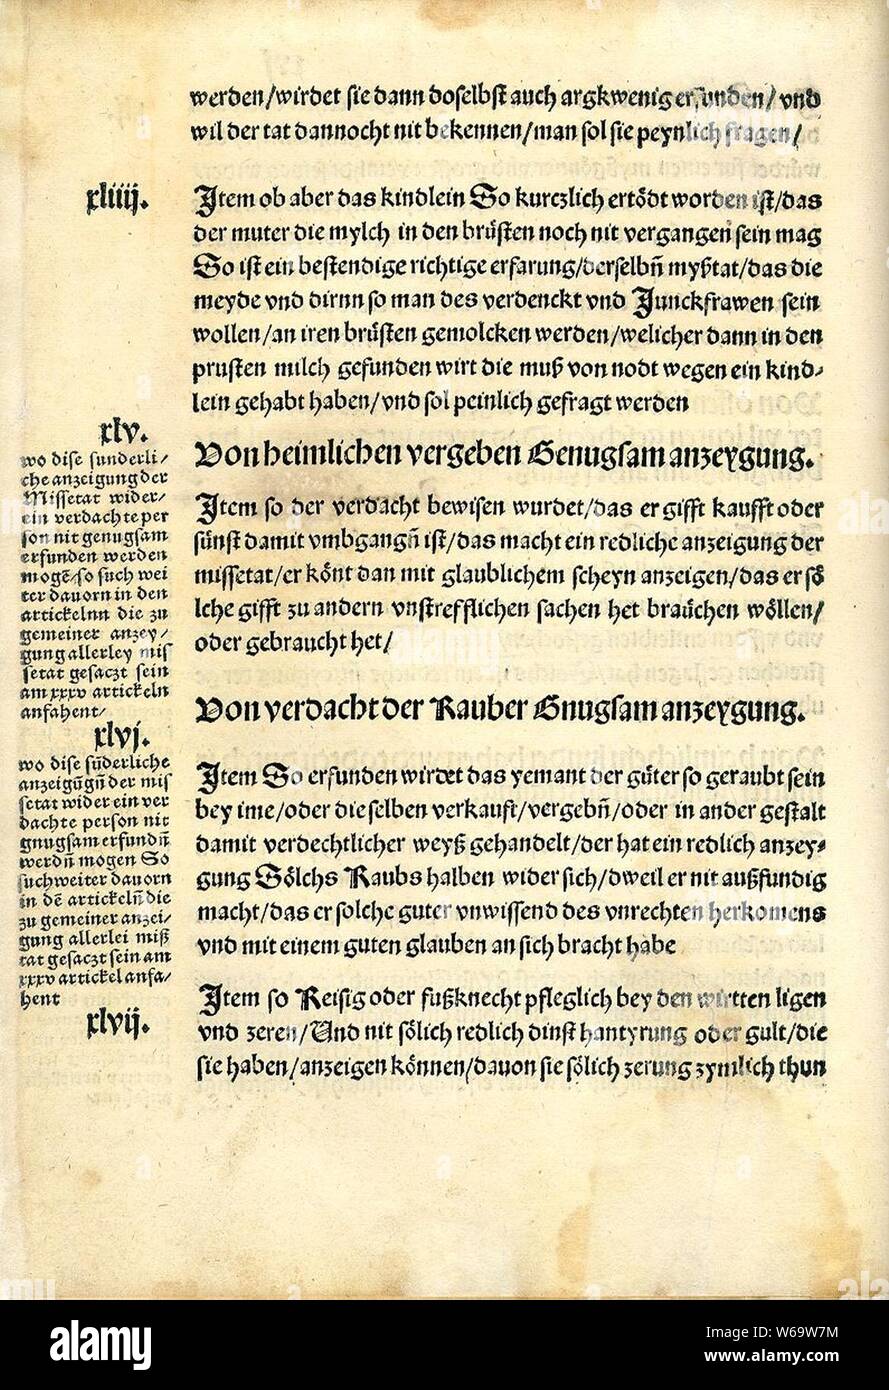 werden/wirdet sie dann doselbst auch argkwenig erfunden/vnd
wil der tat dannocht nit bekennen/man sol sie peynlich fragen/
xliiij.
Item ob aber das kindlein So kurczlich ertödt worden ist/das
der muter die mylch in den brüsten noch nit vergangen sein mag
So ist ein bestendige richtige erfarung/derselbñ myßtat/das die
meyde vnd dirnn so man des verdenckt vnd Junckfrawen sein
wollen/an iren brüsten gemolcken werden/welicher dann in den
prusten milch gefunden wirt die muß von nodt wegen ein kind-
lein gehabt haben/vnd sol peinlich gefragt werden
xlv.
wo dise sunderli/
che anzeigung der
Missetat wider/
ein verdachte per
son nit genugsam
erfunden werden
mogē/so such wei
ter dauorn in den
artickelnn die zu
gemeiner anzey/
gung allerley mis
setat gesaczt sein
am xxxv artickeln
anfahent/
Von heimlichen vergeben Genugsam anzeygung.
Item so der verdacht bewisen wurdet/das er gifft kaufft oder
sünst damit vmbgangñ ist/das macht ein redliche anzeigung der
missetat/er könt dan mit glaublichem scheyn anzeigen/das er sö
lche gifft zu andern vnstrefflichen sachen het brauchen wöllen/
oder gebraucht het/
xlvj.
wo dise sũderliche
anzeigũgñ der mis
setat wider ein ver
dachte person nit
gnugsam erfundñ
werdñ mogen So
such weiter dauorn
in dē artickelñ die
zu gemeiner anzei/
gung allerlei miß
tat gesaczt sein am
xxxv artickel anfa/
hent
Von verdacht der Rauber Gnugsam anzeygung.
Item So erfunden wirdet das yemant der güter so geraubt sein
bey ime/oder dieselben verkauft/vergebñ/oder in ander gestalt
damit verdechtlicher weyß gehandelt/der hat ein redlich anzey-
gung Sölchs Raubs halben wider sich/dweil er nit außfundig
macht/das er solche guter vnwissend des vnrechten herkomens
vnd mit einem guten glauben an sich bracht habe
xlvij.
Item so Reisig oder fußknecht pfleglich bey den wirtten ligen
vnd zeren/Und nit sölich redlich dinst hantyrung oder gult/die
sie haben/anzeigen können/dauon sie sölich zerung zymlich thun
alamy
Image ID: W69W7M
www.alamy.com